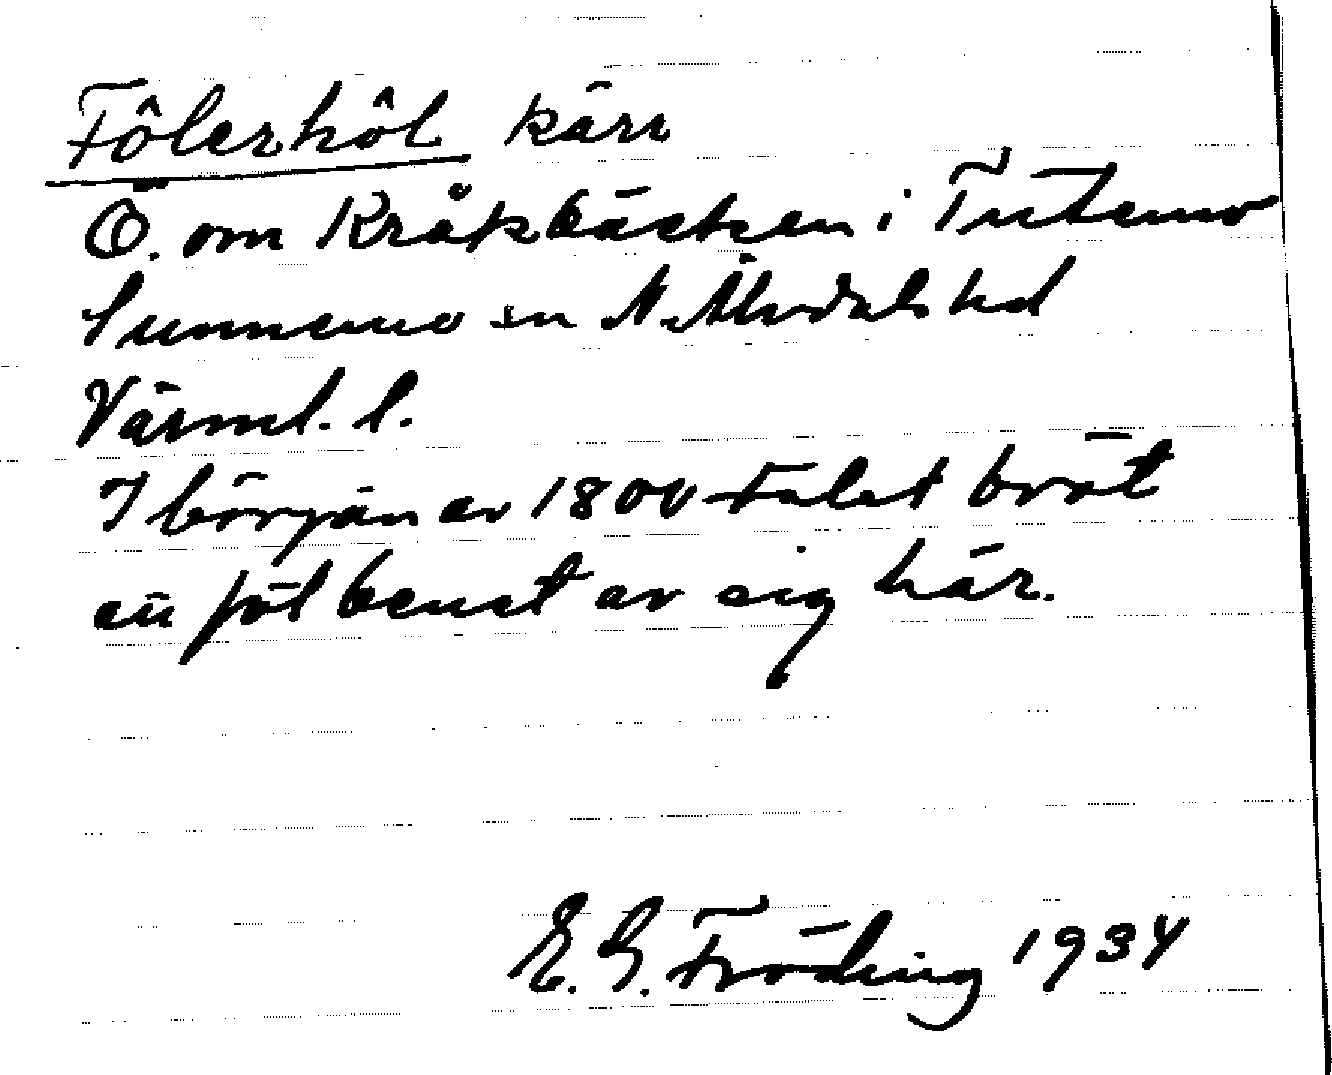 Fôlerhôl kärr
Ö. om Kråkbäcken i Tutemo
Sunnemo sn N. Älvdals hd
Värml. l.
I början av 1800 talet bröt
ett föl benet av sig här.
E. G. Fröding 1934